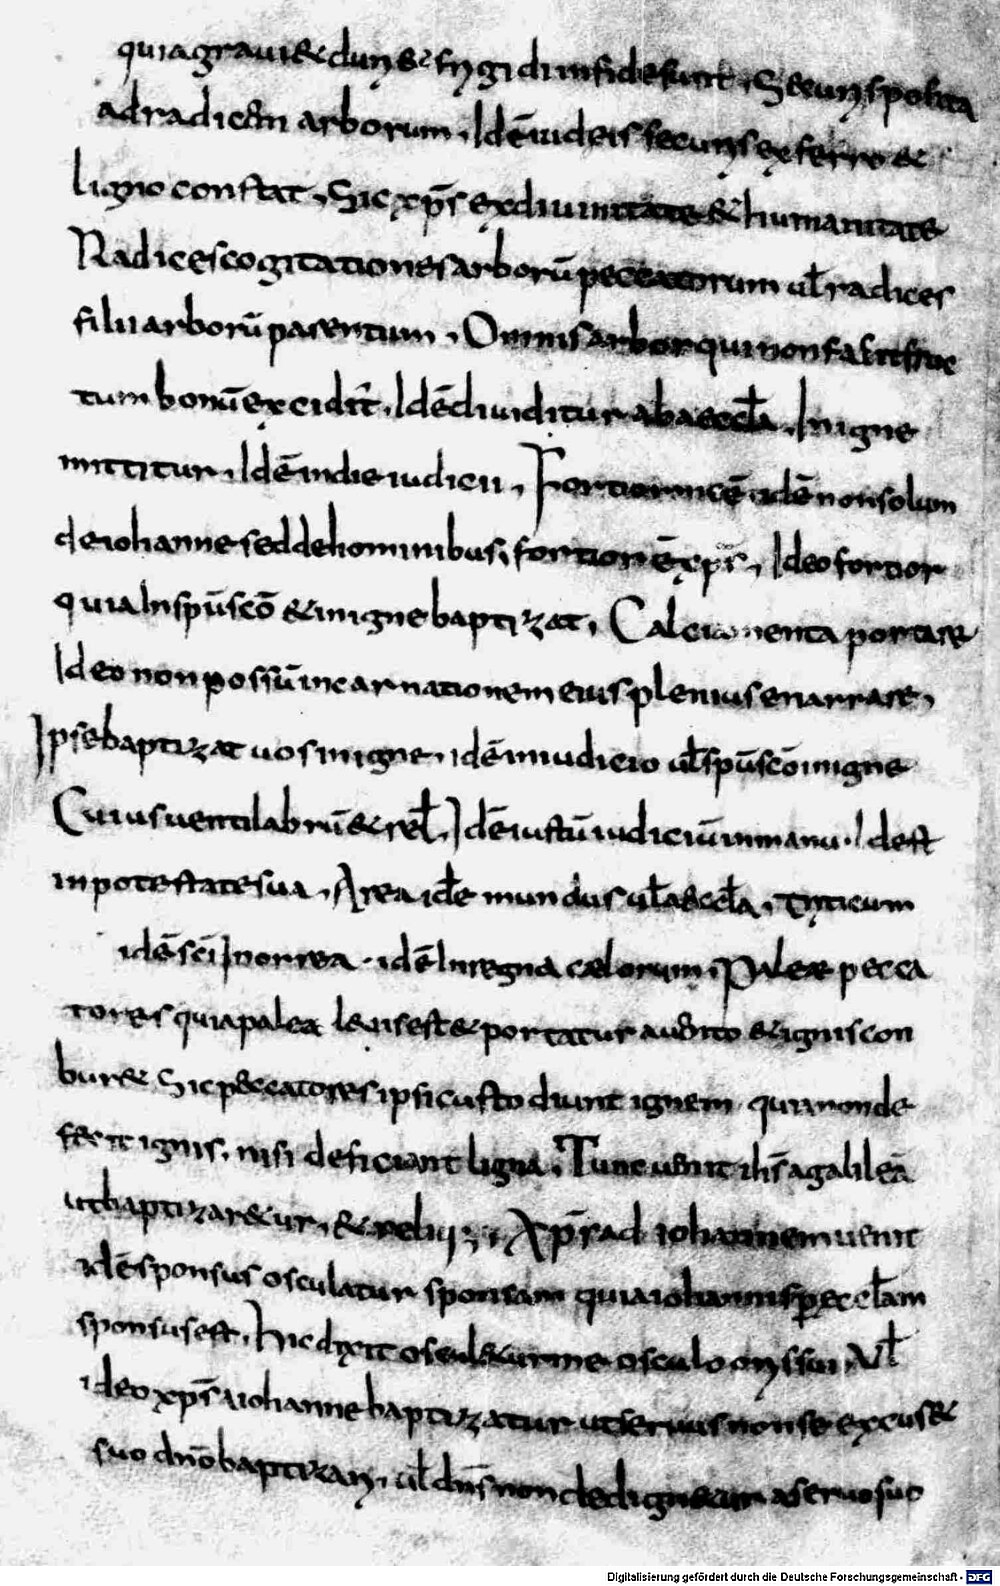 quia graui & duri & frigidi in fide sunt . Securis posita
ad radicem arborum . Idē iudeis securis ex ferro &
ligno constat . Sic xp̄s ex diuinitate & humanitate
Radices cogitationes arborū peccatorum ul̄ radices
filii arborū parentum . Omnis arbor qui non facit fruc
tum bonū excidit̄ . Idē diuiditur ab aeccl̄a . In igne
mittitur . Idē in die iudicii . Fortior me ē idē non solum
de iohanne sed de hominibus fortior ē xp̄s . Ideo fortior
quia In sp̄u sc̄o & in igne baptizat . Calciamenta portare
Ideo non possū incarnationem eius plenius enarrare .
Ipse baptizat uos in igne . idē in iudicio ul̄ sp̄u sc̄o in igne
Cuius uentilabrū & rel̄ . Idē iustū iudiciū in manu . Idest
in potestate sua . Area idē mundus ul̄ aeccl̄a . triticum
idē sc̄i In orrea . idē In regna caelorum . Paleae pecca
tores quia palea leuis est & portatur a uento & ignis con
bur& Sic peccatores ipsi custodiunt ignem quia non de
fecit ignis . nisi deficiant ligna . Tunc uenit ih̄s a galileā
ut baptizar&ur . & reliq; . Xp̄s ad iohannem uenit
idē sponsus osculatur sponsam quia iohannis p̱ eccl̄am
sponsus est . Hic dixit oscul&ur me osculo oris sui Vl̄
ideo xp̄s a iohanne baptizatur ut seruus non se excus&
suo dn̄o baptizari . ul̄ dn̄s non dedign&ur a seruo suo